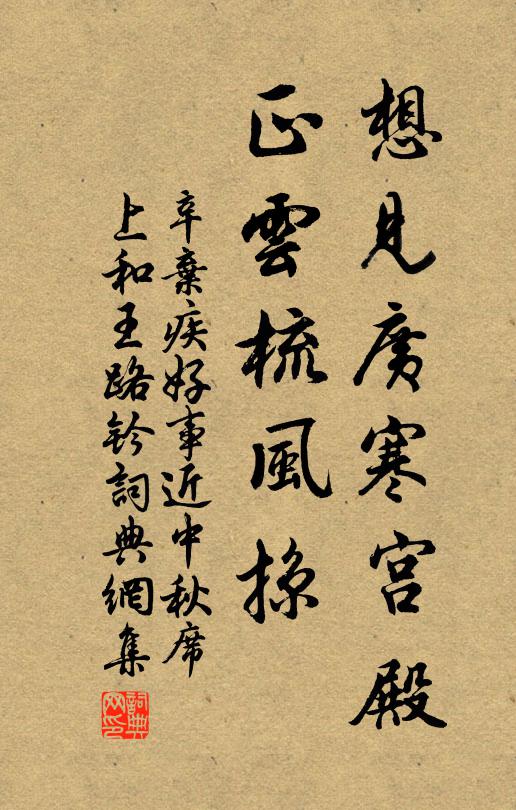 想見廣寒宮殿
正雲梳風掠
辛棄疾好事近中秋席
上和王路鈐詞典網集
詞典
网印